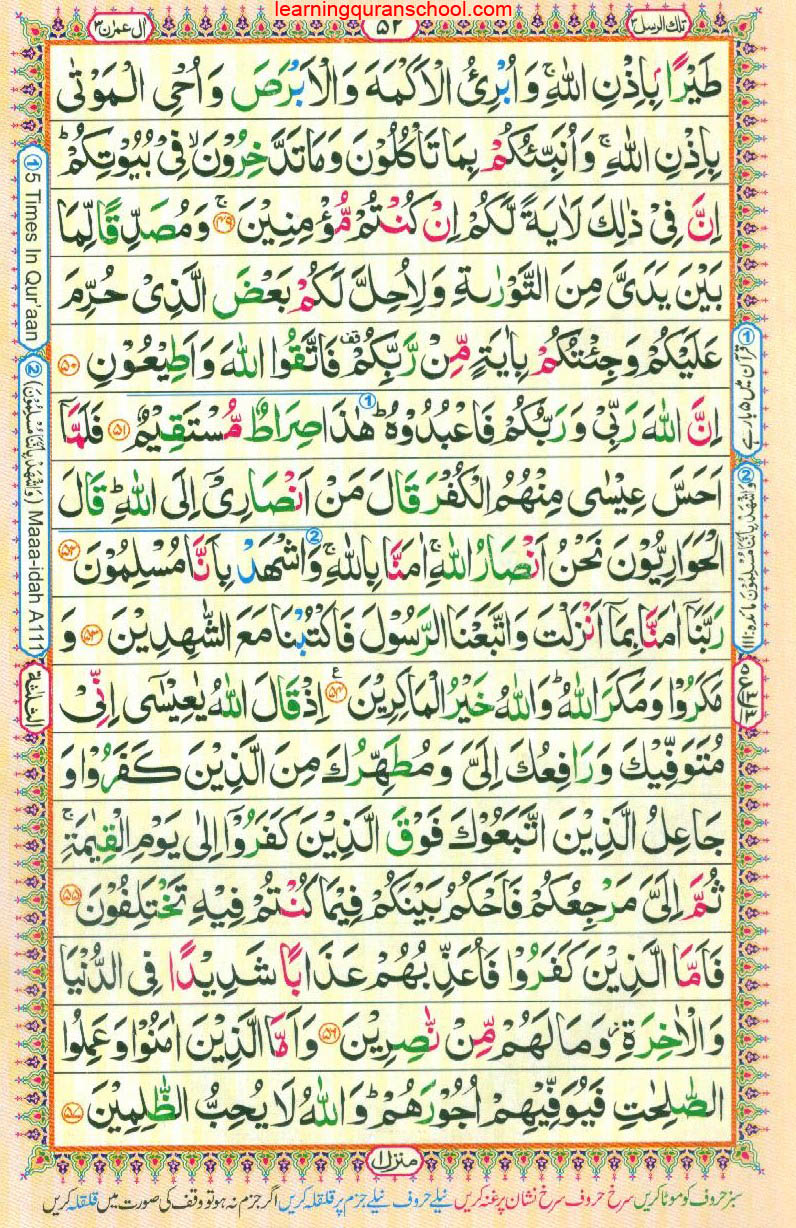 learningquranschool.com
تلك الرسل ۳
۵۲
ال عمرٰن ۳
طَيْرًا بِاِذْنِ اللّٰهِ ۚ وَاُبْرِئُ الْاَكْمَهَ وَالْاَبْرَصَ وَاُحْىِ الْمَوْتٰى
بِاِذْنِ اللّٰهِ ۚ وَاُنَبِّئُكُمْ بِمَا تَاْكُلُوْنَ وَمَا تَدَّخِرُوْنَ ۙ فِىْ بُيُوْتِكُمْ ؕ
اِنَّ فِىْ ذٰلِكَ لَاٰيَةً لَّكُمْ اِنْ كُنْتُمْ مُّؤْمِنِيْنَ ۚ ۴۹ وَمُصَدِّقًا لِّمَا
بَيْنَ يَدَىَّ مِنَ التَّوْرٰٮةِ وَلِاُحِلَّ لَكُمْ بَعْضَ الَّذِىْ حُرِّمَ
عَلَيْكُمْ وَجِئْتُكُمْ بِاٰيَةٍ مِّنْ رَّبِّكُمْ قف فَاتَّقُوا اللّٰهَ وَاَطِيْعُوْنِ ۵۰
اِنَّ اللّٰهَ رَبِّىْ وَرَبُّكُمْ فَاعْبُدُوْهُ ؕ ① هٰذَا صِرَاطٌ مُّسْتَقِيْمٌ ۵۱ فَلَمَّاۤ
اَحَسَّ عِيْسٰى مِنْهُمُ الْكُفْرَ قَالَ مَنْ اَنْصَارِىْۤ اِلَى اللّٰهِ ؕ قَالَ
الْحَوَارِيُّوْنَ نَحْنُ اَنْصَارُ اللّٰهِ ۚ اٰمَنَّا بِاللّٰهِ ۚ ② وَاشْهَدْ بِاَنَّا مُسْلِمُوْنَ ۵۲
رَبَّنَاۤ اٰمَنَّا بِمَاۤ اَنْزَلْتَ وَاتَّبَعْنَا الرَّسُوْلَ فَاكْتُبْنَا مَعَ الشّٰهِدِيْنَ ۵۳ وَ
مَكَرُوْا وَمَكَرَ اللّٰهُ ؕ وَاللّٰهُ خَيْرُ الْمَاكِرِيْنَ ع ۵۴ اِذْ قَالَ اللّٰهُ يٰعِيْسٰۤى اِنِّىْ
مُتَوَفِّيْكَ وَرَافِعُكَ اِلَىَّ وَمُطَهِّرُكَ مِنَ الَّذِيْنَ كَفَرُوْا وَ
جَاعِلُ الَّذِيْنَ اتَّبَعُوْكَ فَوْقَ الَّذِيْنَ كَفَرُوْۤا اِلٰى يَوْمِ الْقِيٰمَةِ ۚ
ثُمَّ اِلَىَّ مَرْجِعُكُمْ فَاَحْكُمُ بَيْنَكُمْ فِيْمَا كُنْتُمْ فِيْهِ تَخْتَلِفُوْنَ ۵۵
فَاَمَّا الَّذِيْنَ كَفَرُوْا فَاُعَذِّبُهُمْ عَذَابًا شَدِيْدًا فِى الدُّنْيَا
وَالْاٰخِرَةِ وَمَا لَهُمْ مِّنْ نّٰصِرِيْنَ ۵۶ وَاَمَّا الَّذِيْنَ اٰمَنُوْا وَعَمِلُوا
الصّٰلِحٰتِ فَيُوَفِّيْهِمْ اُجُوْرَهُمْ ؕ وَاللّٰهُ لَا يُحِبُّ الظّٰلِمِيْنَ ۵۷
① قرآن میں ۵ بار ہے
② وَاشْهَدْ بِاَنَّنَا مُسْلِمُوْنَ مائدہ: ۱۱۱
① 5 Times In Qur'aan
② (وَاشْهَدْ بِاَنَّنَا مُسْلِمُوْنَ) Maaa-idah A111
الثلثة
منزل ۱
سبز حروف کو موٹا کریں سرخ حروف سرخ نشان پر غنہ کریں نیلے حروف نیلے جزم پر قلقلہ کریں اگر جزم نہ ہو تو وقف کی صورت میں قلقلہ کریں